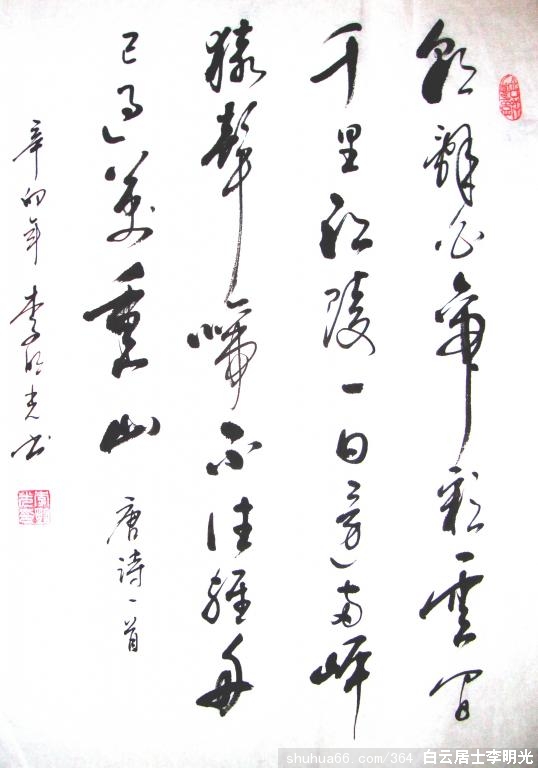 朝辭白帝彩雲間
千里江陵一日還两岸
猿聲啼不住輕舟
已過萬重山 唐詩一首
辛卯年 李明光书
shuhua66.com/364 白云居士李明光